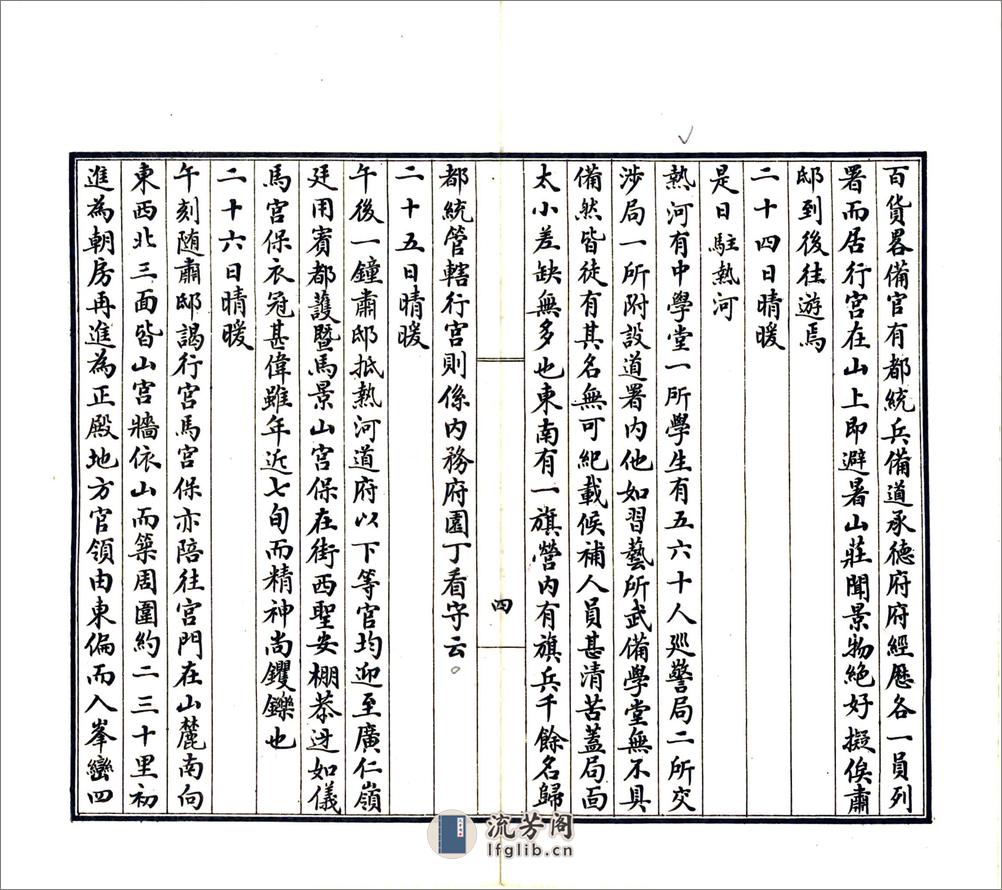 百貨畧備官有都統兵備道承德府府經歷各一員列
署而居行宮在山上即避暑山莊聞景物絕好擬俟肅
邸到後往游焉
二十四日晴暖
是日駐熱河
熱河有中學堂一所學生有五六十人巡警局二所交
涉局一所附設道署内他如習藝所武備學堂無不具
備然皆徒有其名無可紀載候補人員甚清苦蓋局面
太小差缺無多也東南有一旗營内有旗兵千餘名歸
四
都統管轄行宮則係内務府園丁看守云。
二十五日晴暖
午後一鐘肅邸抵熱河道府以下等官均迎至廣仁嶺
廷用賓都護暨馬景山宮保在街西聖安棚恭迓如儀
馬宮保衣冠甚偉雖年近七旬而精神尚钁鑠也
二十六日晴暖
午刻随肅邸謁行宮馬宮保亦陪往宮門在山麓南向
東西北三面皆山宮牆依山而築周圍約二三十里初
進為朝房再進為正殿地方官領由東偏而入峯巒四
流芳阁
lfglib.cn